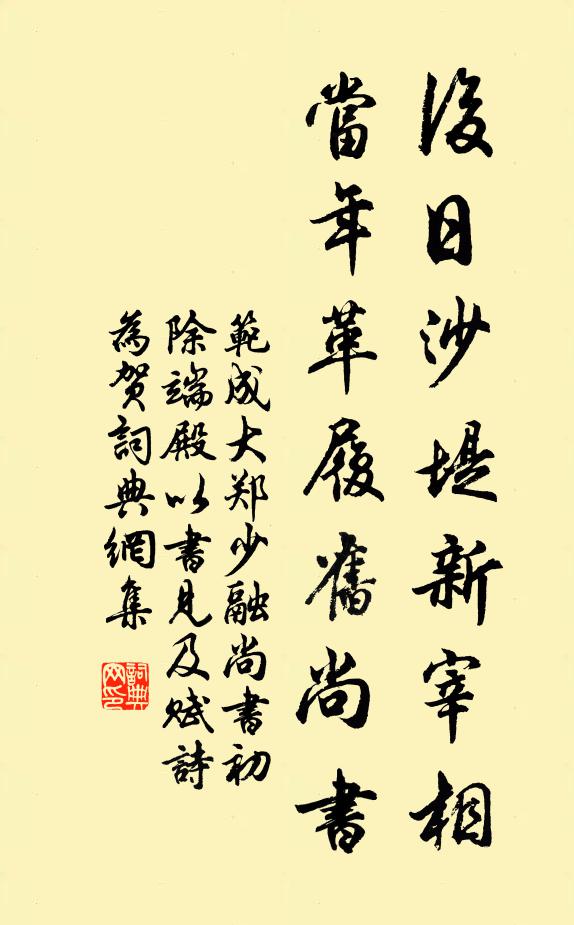 後日沙堤新宰相
當年革履舊尚書
範成大郑少融尚書初
除端殿以書見及赋詩
為贺詞典網集
詞典网印